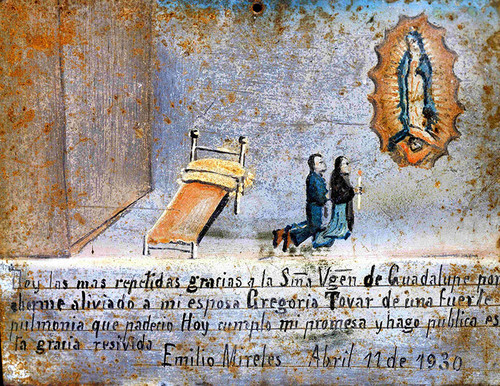 Doy las mas repetidas gracias a la Sma Vgen de Guadalupe por
aberme aliviado a mi esposa Gregoria Tovar de una fuerte
pulmonia que padecio Hoy cumplo mi promesa y hago publica es
ta gracia resivida
Emilio Mireles Abril 11 de 1930